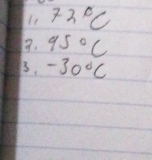 1. 72°C
2. 95°C
3. -30°C